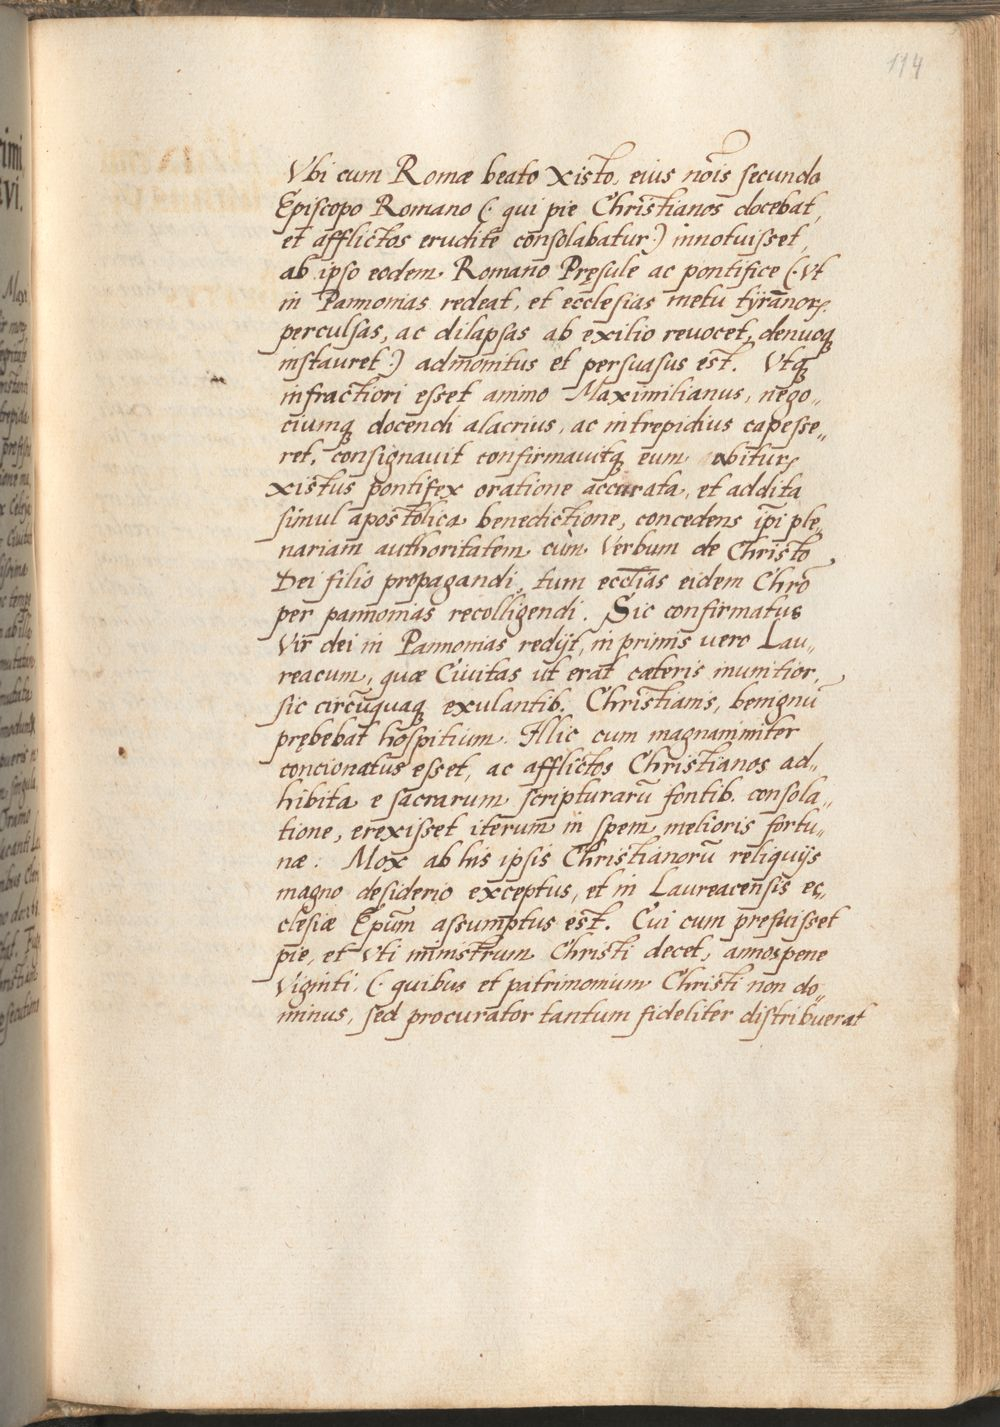 114
Vbi cum Romæ beato Xisto, eius nois̄ secundo
Episcopo Romano (· qui pie Christianos docebat,
et afflictos erudite consolabatur ·) innotuisset,
ab ipso eodem Romano Pręsule ac pontifice (· Vt
in Pannonias redeat, et ecclesias metu tyrannoꝝ
perculsas, ac dilapsas ab exilio reuocet, denuoqꝫ
instauret ·) admonitus et persuasus est. Vtqꝫ
infractiori esset animo Maximilianus, nego„
ciumqꝫ docendi alacrius, ac intrepidius capesse„
ret, consignauit confirmauitqꝫ eum abituꝝ
xistus pontifex oratione accurata, et addita
simul apostolica benedictione, concedens ip̄i ple„
nariam authoritatem cùm Verbum de Christo
Dei filio propagandi, tum eccl̄ias eidem Chr̄o
per pannonias recolligendi. Sic confirmatus
Vir dei in Pannonias redijt, in primis uero Lau„
reacum, quæ Ciuitas ut erat cæteris munitior,
sic circūquaqꝫ exulantib. Christianis, benignū
prębebat hospitium. Illic cum magnanimiter
concionatus esset, ac afflictos Christianos ad„
hibita e sacrarum scripturarū fontib. consola„
tione, erexisset iterum in spem melioris fortu„
næ. Mox ab his ipsis Christianorū reliquijs
magno desiderio exceptus, et in Laureacensis ec„
clesiæ Ep̄um assumptus est. Cui cum prefuisset
pie, et Vti ministrum Christi decet, annos pene
Viginti (· quibus et patrimonium Christi non do„
minus, sed procurator tantum fideliter distribuerat